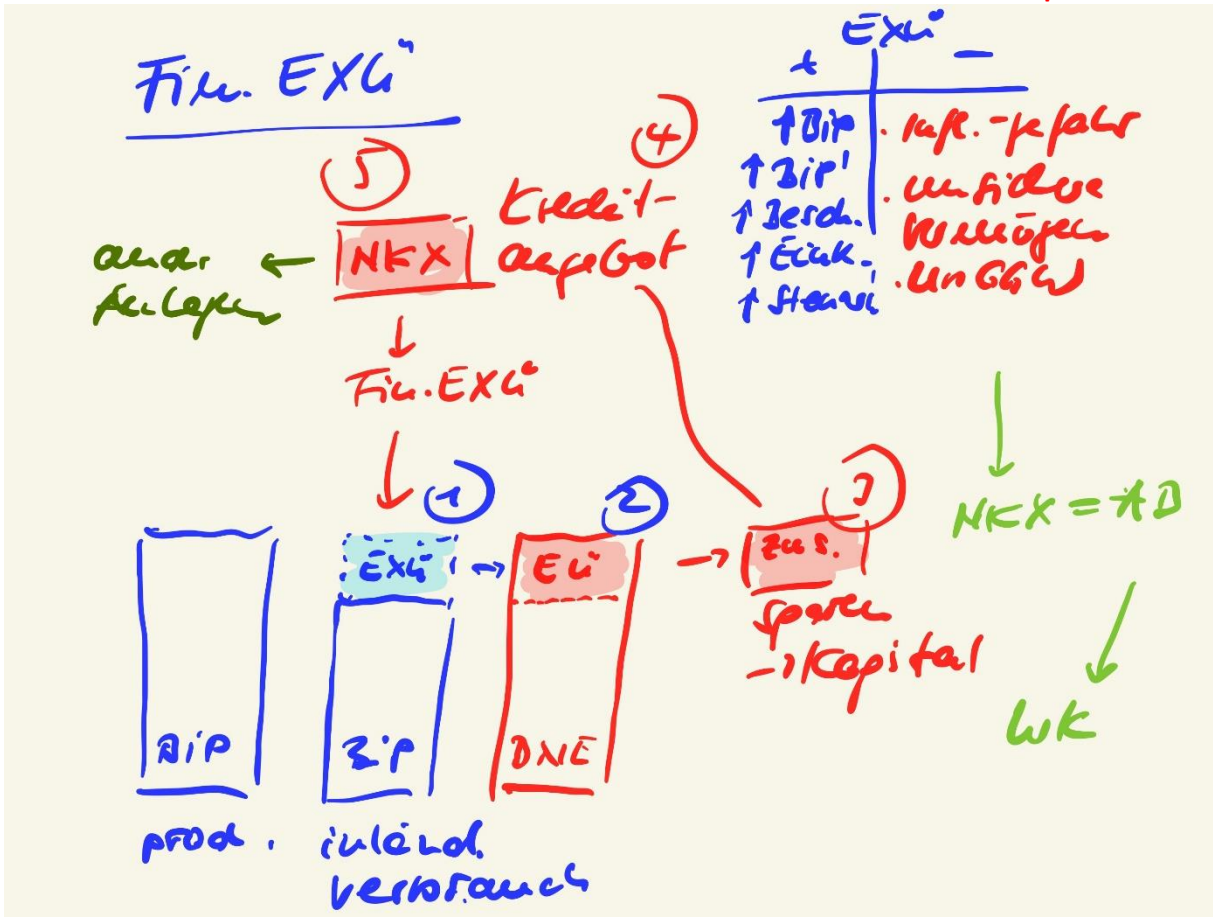 Fin. EXÜ
EXÜ
+ -
↑ BiP
↑ BiP'
↑ Besch.
↑ Eink.
↑ Steuern
. Infl.-gefahr
. unsichere
Vermögen
. UnGGW
5
NKX
← andr.
Anlagen
4
Kredit-
angebot
↓
Fin. EXÜ
↓
1
EXÜ →
2
EÜ →
3
zus.
sparen
→ Kapital
BiP
BiP
DNE
prod.
inländ.
verbrauch
↓
NKX = AB
↓
WK